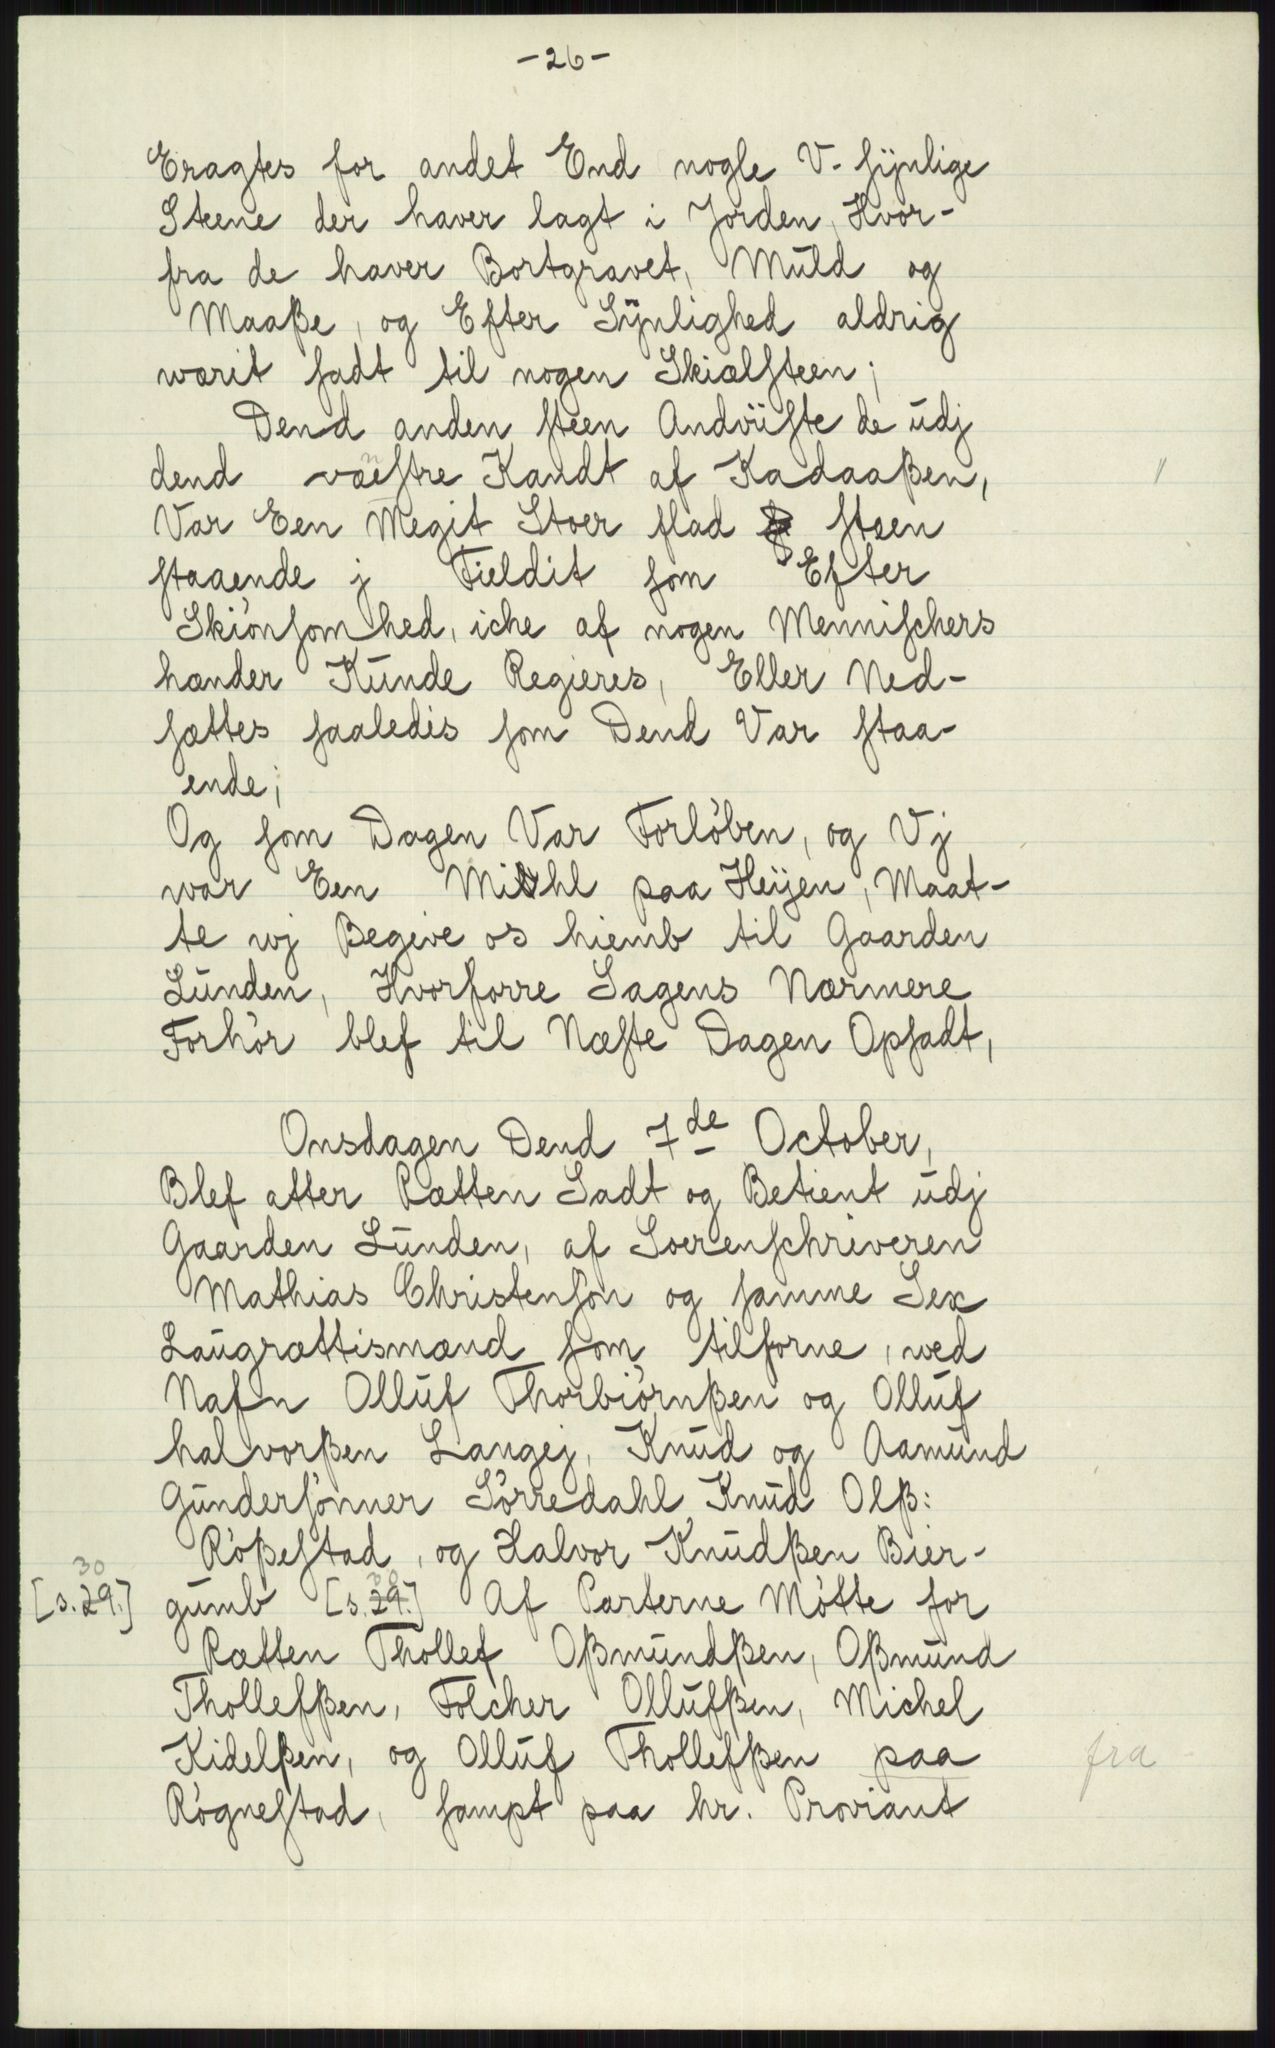 -26-
Eragtes for andet End nogle V-synlige
Steene der haver lagt i Jorden, Hvor-
fra de haver Bortgravet, Muld og
Maaße, og Efter Sÿnlighed aldrig
warit sadt til nogen Skiælsteen;
Dend anden steen Andviiste de udj
dend væstre Kandt af Kadaaßen,
Var Een Megit Stoer flad steen
staaende j Fieldit som Efter
Skiønsomhed, iche af nogen Mennischers
hænder Kunde Regieres, Eller Ned-
sættes saaledis som Dend Var staa-
ende;
Og som Dagen Var Forløben, og Vj
war Een Miihl paa Heÿen, Maat-
te wj Begive os hiemb til Gaarden
Lunden, Hvorforre Sagens Nærmere
Forhør blef til Næste Dagen Opsadt,
Onsdagen Dend 7de October,
Blef atter Rætten Sadt og Betient udj
Gaarden Lunden, af Soerenschriveren
Mathias Christensøn og samme Sex
Laugrættismænd som tilforne, wed
Nafn Olluf Thorbiørnßen og Olluf
halvorßen Langej, Knud og Aamund
Gundersønner Sørredahl Knud Olß:
Røßestad, og Halvor Knudßen Bier-
30 30
[s. 29.] gumb [s. 29.] Af Parterne Møtte for
Rætten Thollef Oßmundßen, Oßmund
Thollefßen, Folcher Ollufßen, Michel
Kidelßen, og Olluf Thollefßen paa fra
Røgnestad, sampt paa hr. Proviant